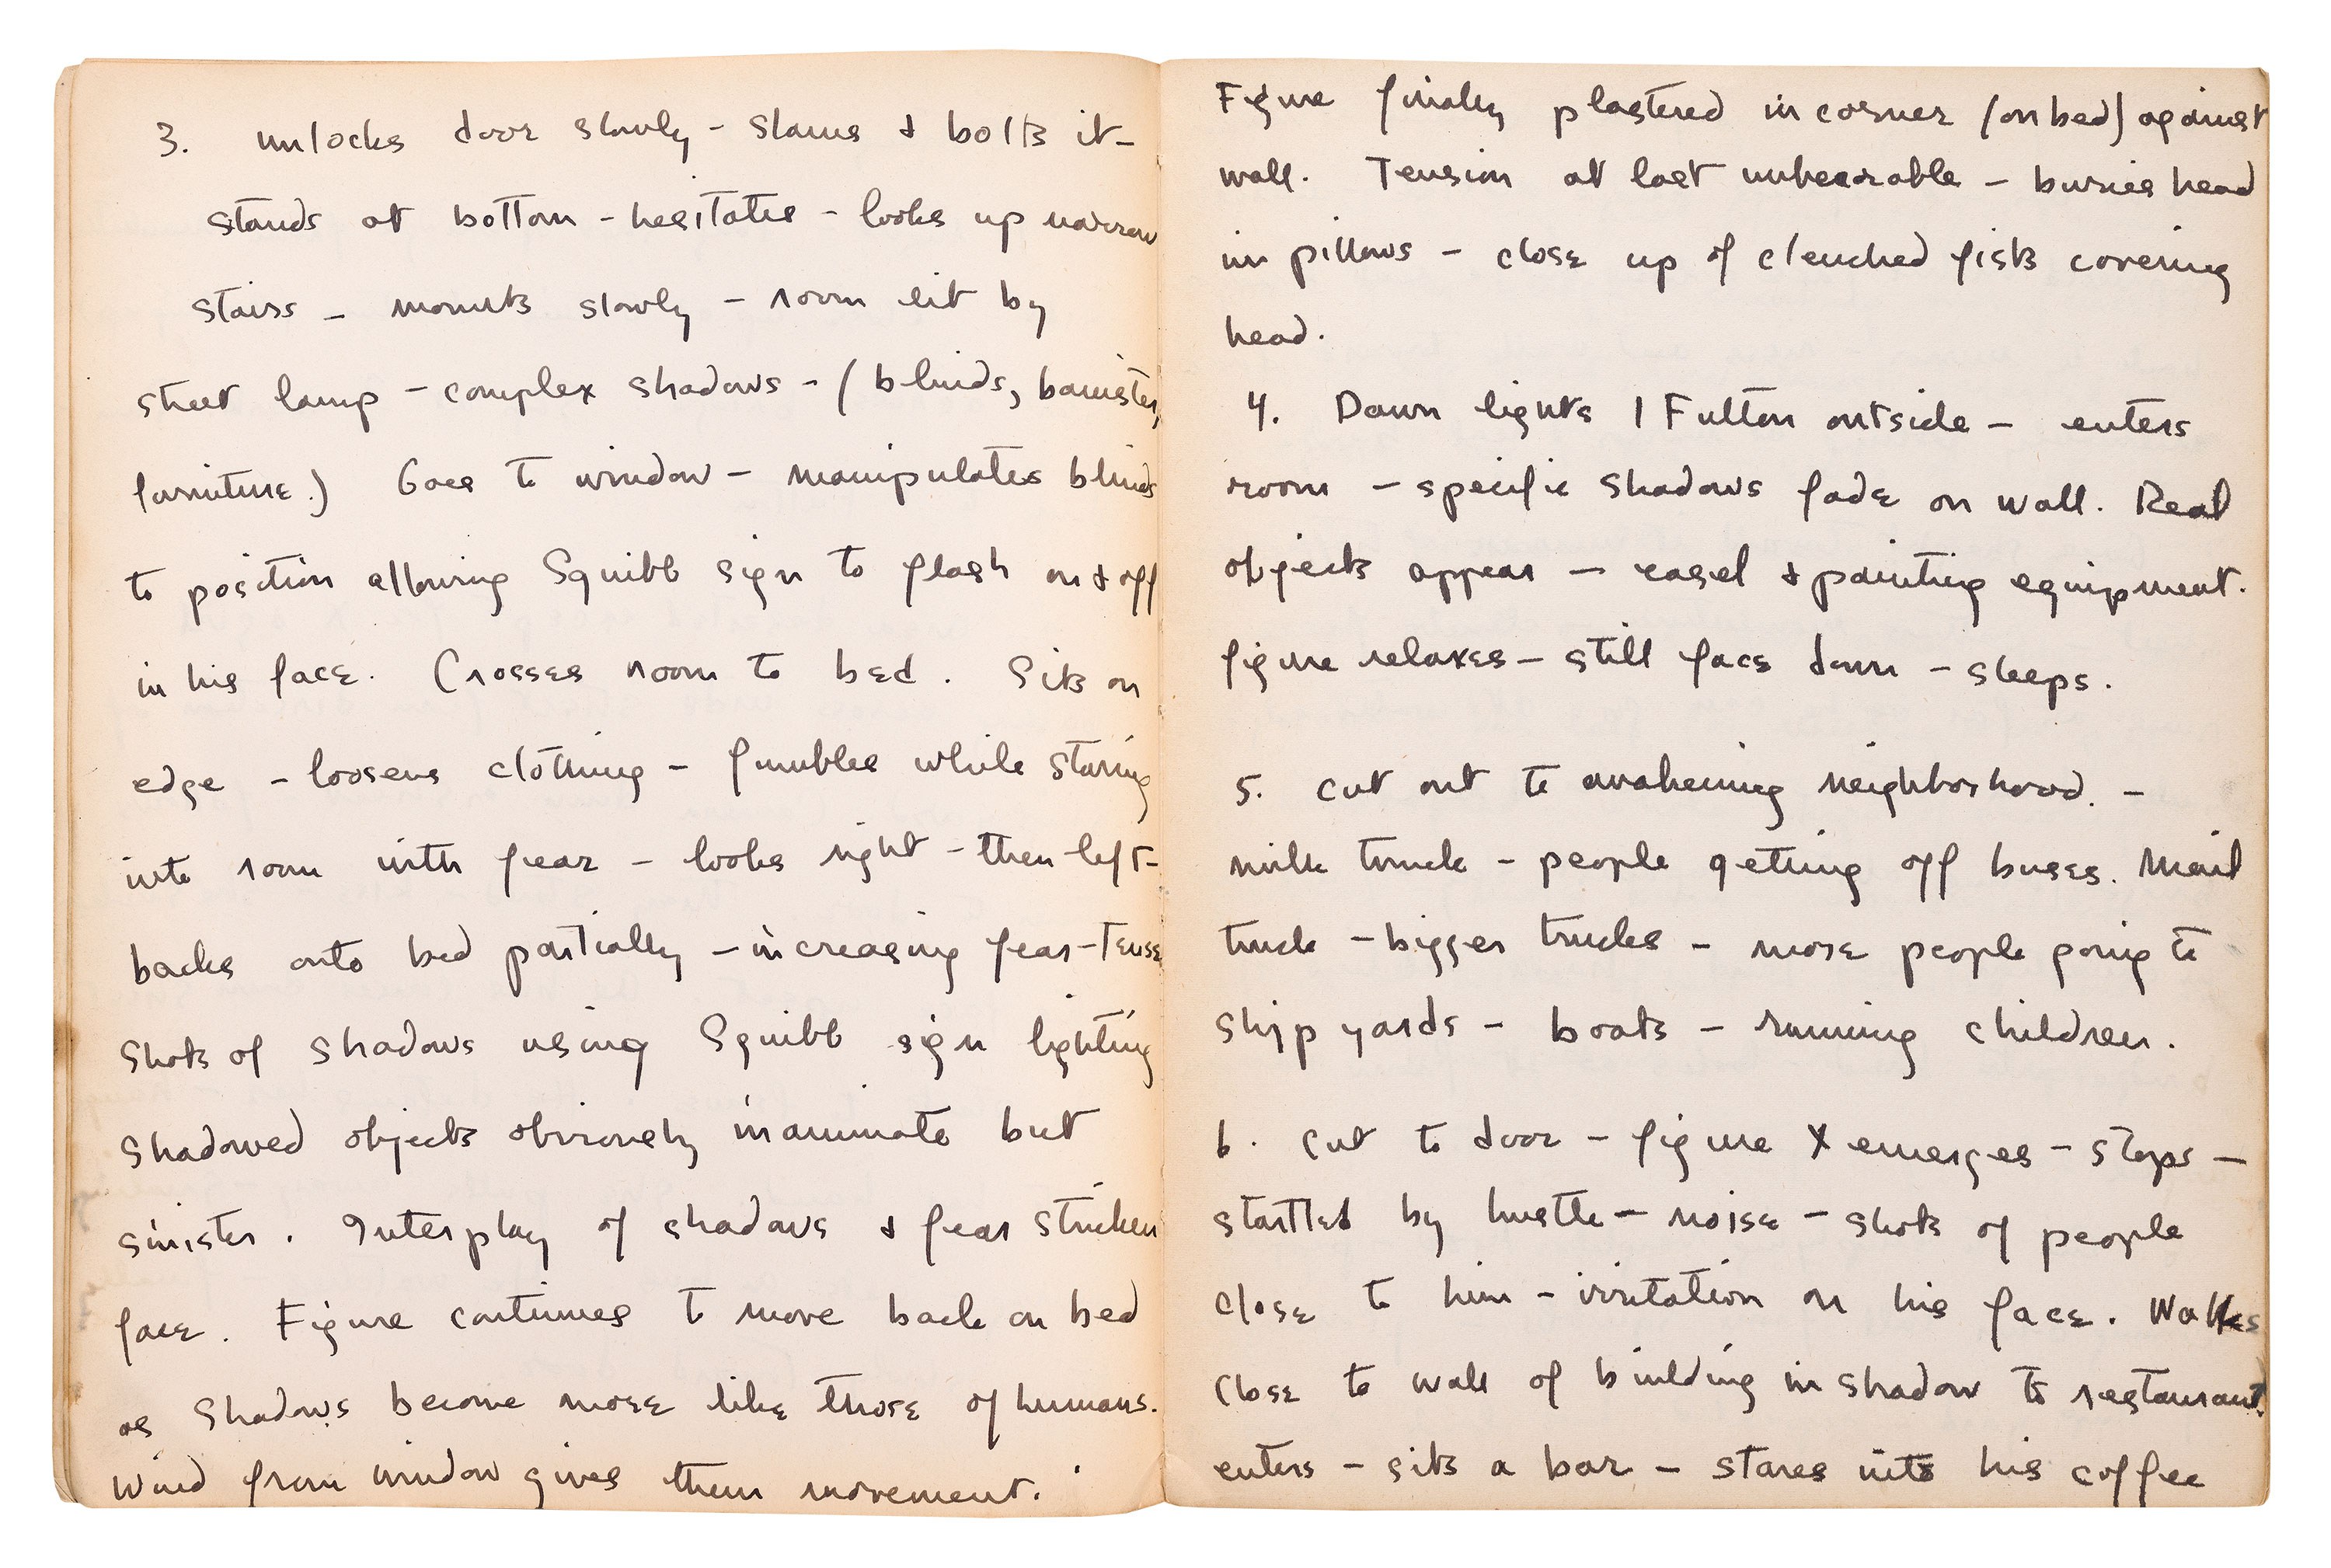 3. unlocks door slowly - slams & bolts it -
stands at bottom - hesitates - looks up narrow
stairs - mounts slowly - room lit by
street lamp - complex shadows - (blinds, banister,
furniture.) Goes to window - manipulates blinds
to position allowing Squibb sign to flash on & off
in his face. Crosses room to bed. Sits on
edge - loosens clothing - fumbles while staring
into room with fear - looks right - then left -
backs onto bed partially - increasing fear - Tense
Shots of shadows using Squibb sign lighting
Shadowed objects obviously inanimate but
sinister. Interplay of shadows & fear stricken
face. Figure continues to move back on bed
as Shadows become more like those of humans.
Wind from window gives them movement.
Figure finally plastered in corner (on bed) against
wall. Tension at last unbearable - buries head
in pillows - close up of clenched fists covering
head.
4. Dawn lights 1 Fulton outside - enters
room - specific shadows fade on wall. Real
objects appear - easel & painting equipment.
figure relaxes - still face down - sleeps.
5. Cut out to awakening neighborhood. -
milk truck - people getting off buses. Mail
truck - bigger trucks - more people going to
ship yards - boats - running children.
6. Cut to door - figure X emerges - stops -
startled by hustle - noise - shots of people
close to him - irritation on his face. Walks
close to wall of building in shadow to restaurant.
enters - sits a bar - stares into his coffee